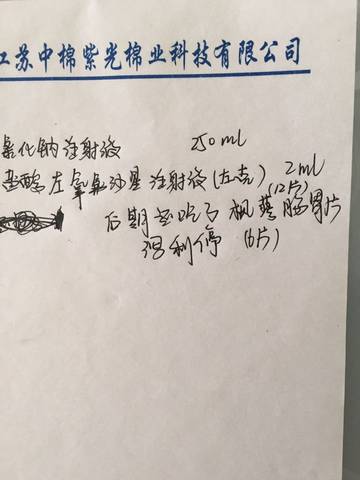 江苏中棉紫光棉业科技有限公司
氯化钠注射液 250ml
盐酸左氧氟沙星注射液(左克) 2ml
(12片)
后期至吃了枫蓼肠胃片
得利停 (6片)